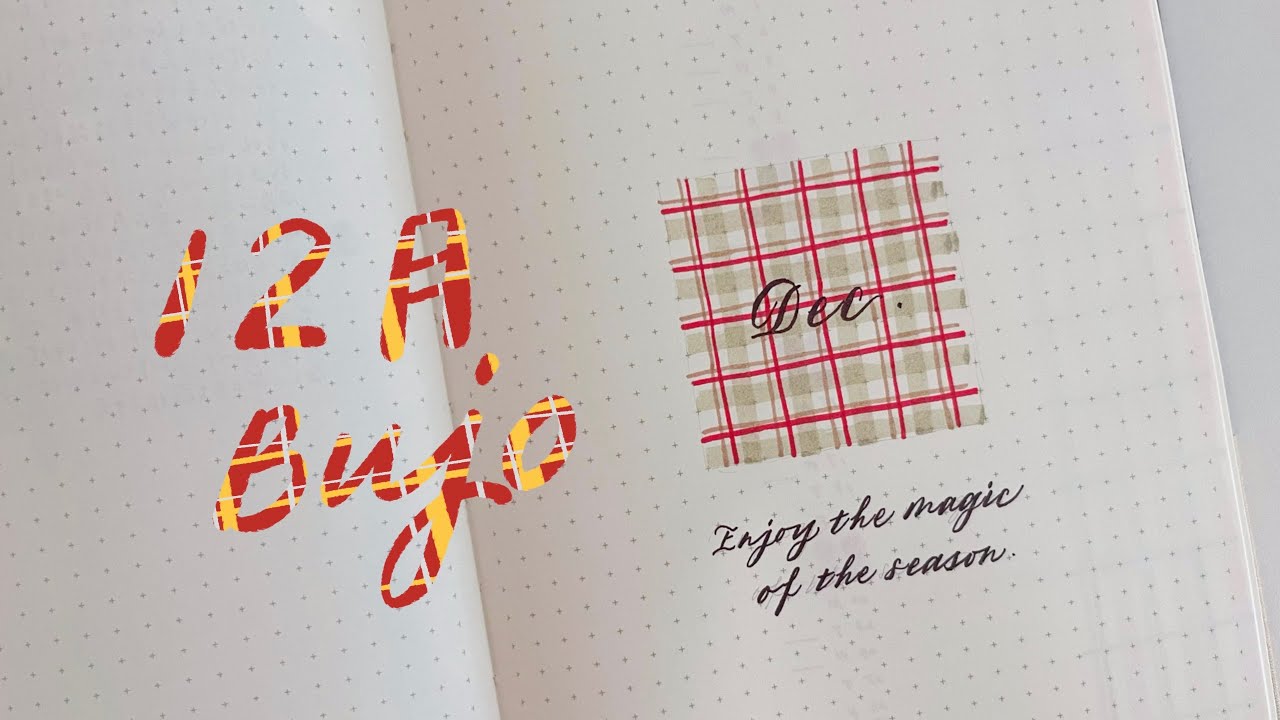 12月
Bujo
Dec.
Enjoy the magic
of the season.